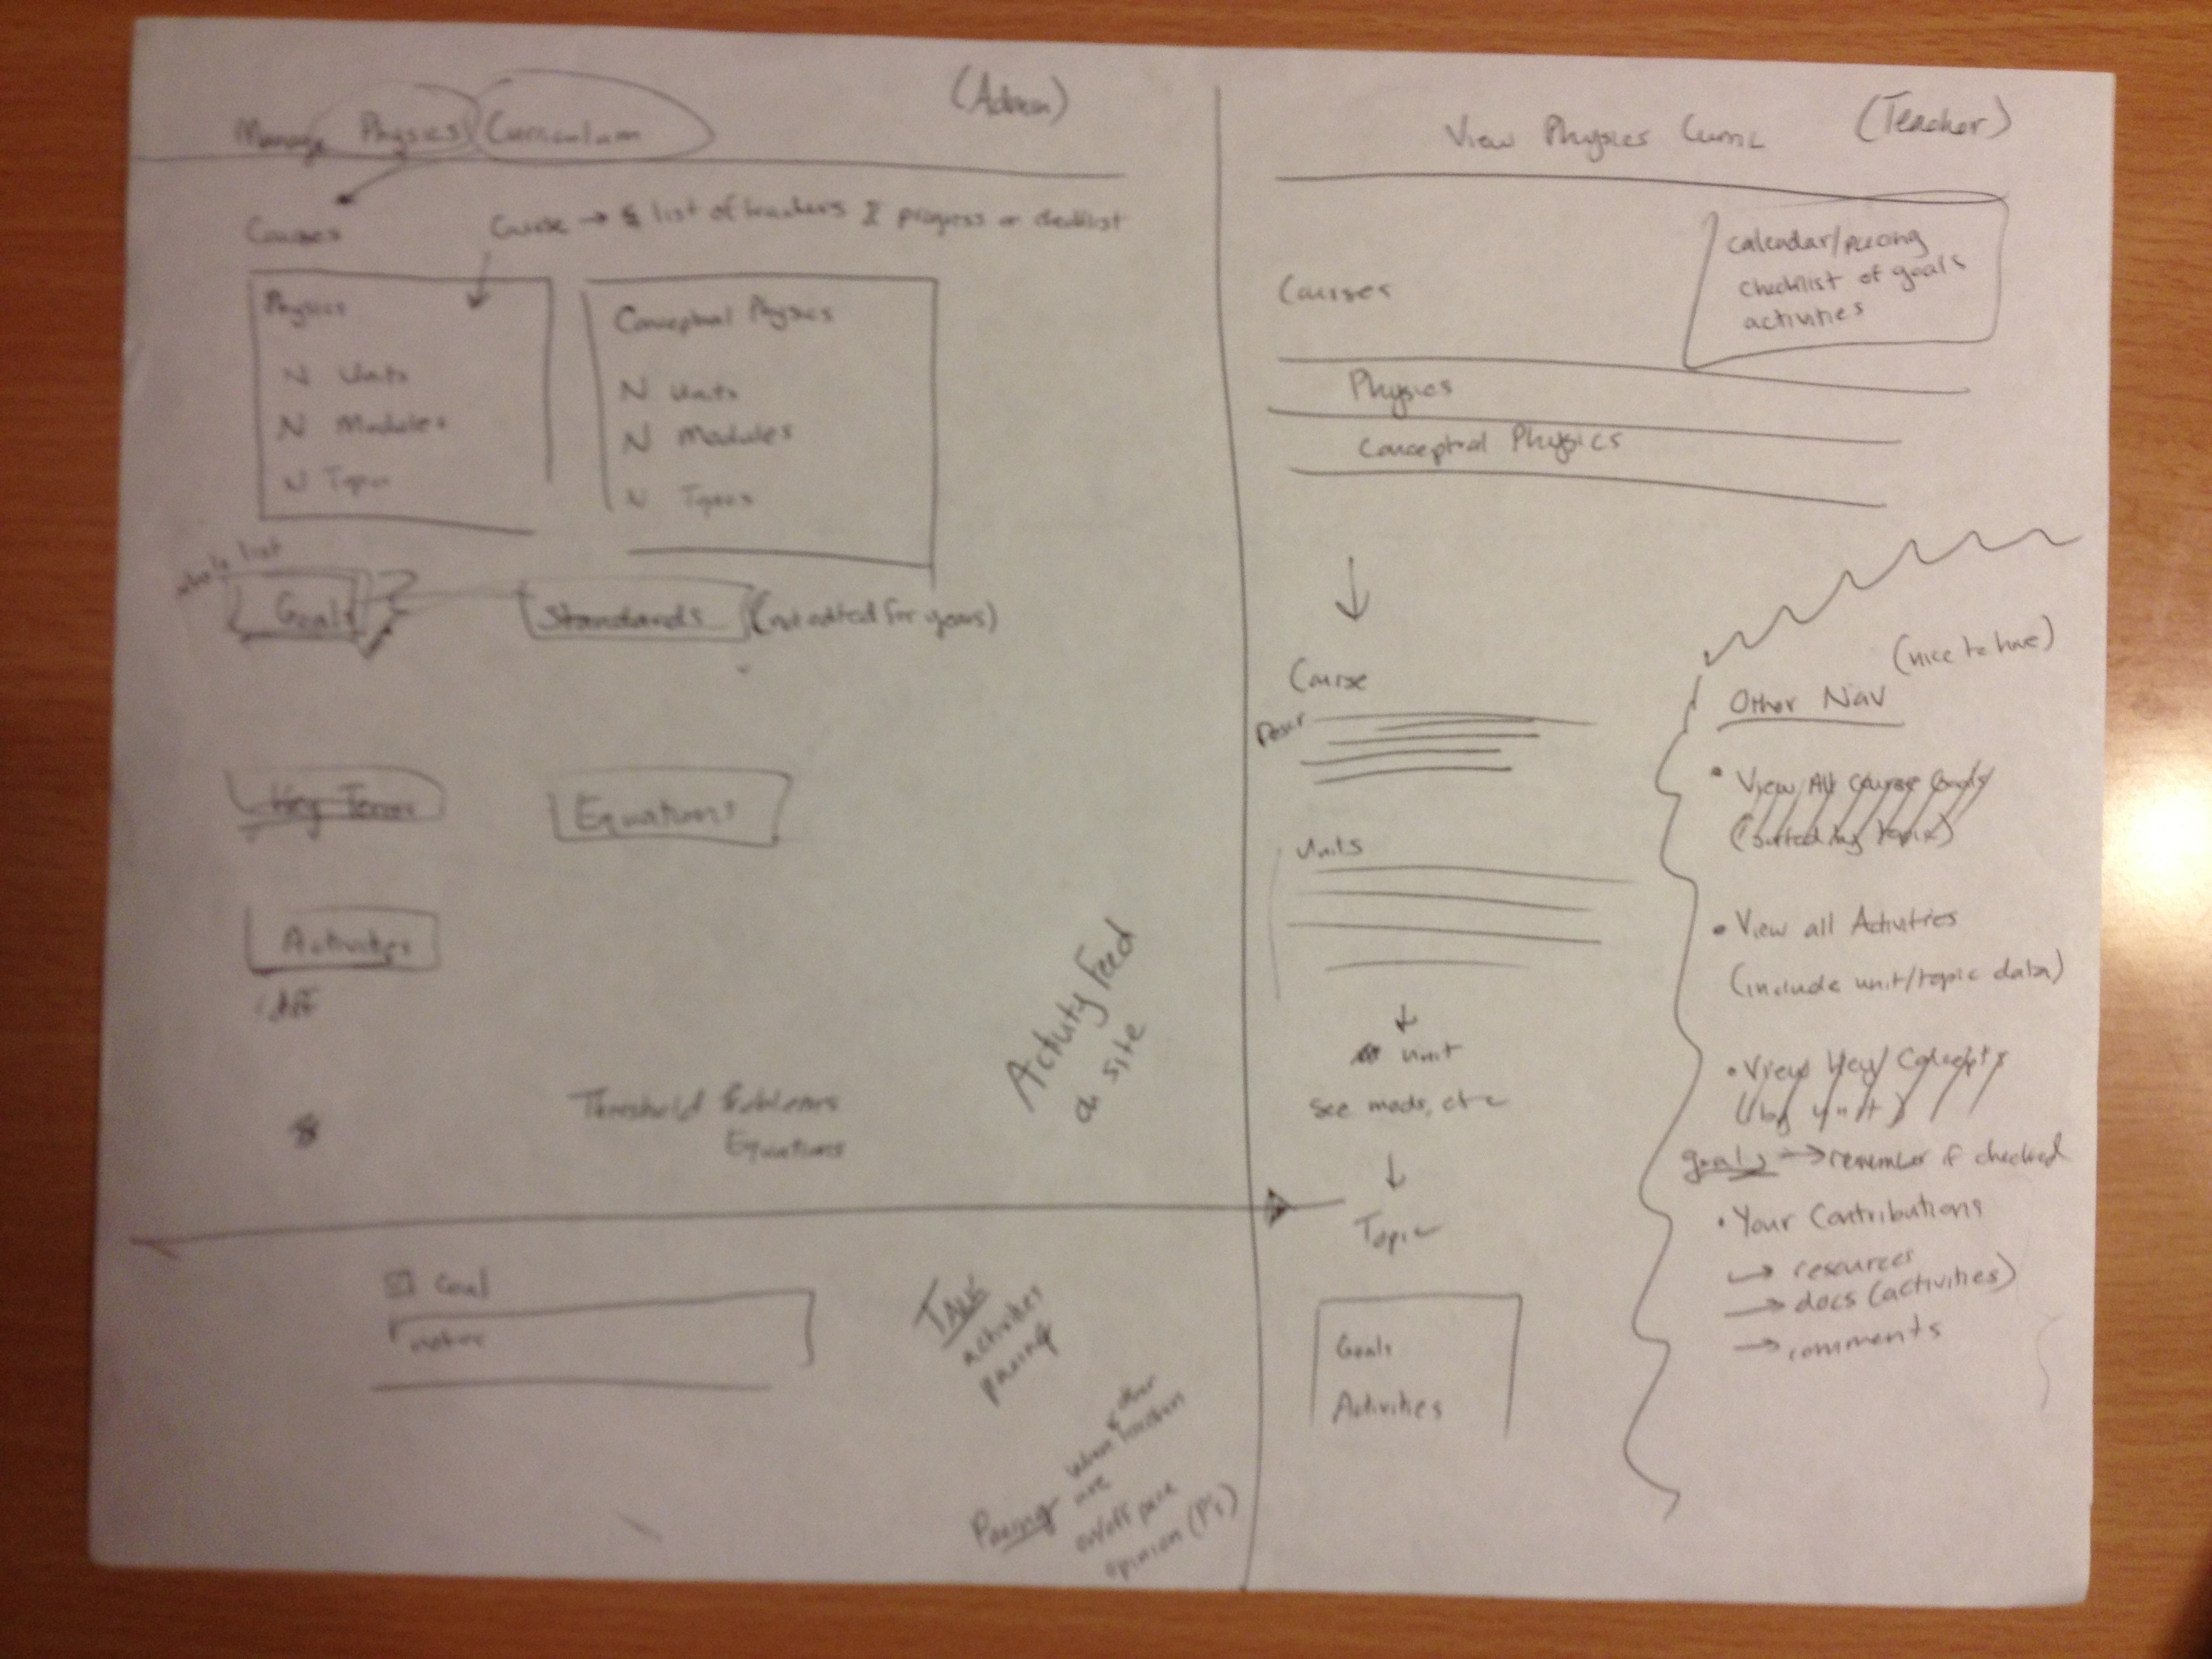 Manage Physics Curriculum
(Admin)
Courses
Course → list of teachers progress or checklist
Physics
N Units
N Modules
N Topics
Conceptual Physics
N Units
N Modules
N Topics
whole list
Goals
Standards (not edited for years)
Key Terms
Equations
Activities
Activity Feed
on site
Threshold Problems
Equations
Goal
notes
TALK
activities
pacing
Pacing when & other
are teachers
on/off pace
opinion (P's)
View Physics Curric
(Teacher)
calendar/pacing
checklist of goals
activities
Courses
Physics
Conceptual Physics
Course
Descr
Units
unit
see mods, etc
Topic
Goals
Activities
(nice to have)
Other Nav
• View All Course Goals
(sorted by topic)
• View all Activities
(include unit/topic data)
• View Key Concepts
(by unit)
goals → remember if checked
• Your Contributions
→ resources
→ docs (activities)
→ comments